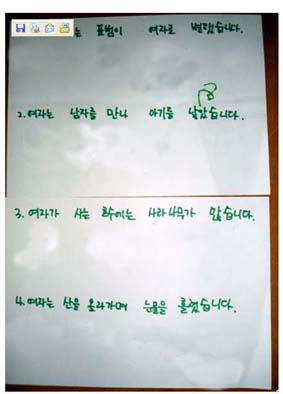 는 표범이 여자로 변했습니다.
2. 여자는 남자를 만나 아기를
3. 여자가 사는 호수에는 사라나무가 많습니다.
4. 여자는 산을 올라가며 눈물을 흘렸습니다.